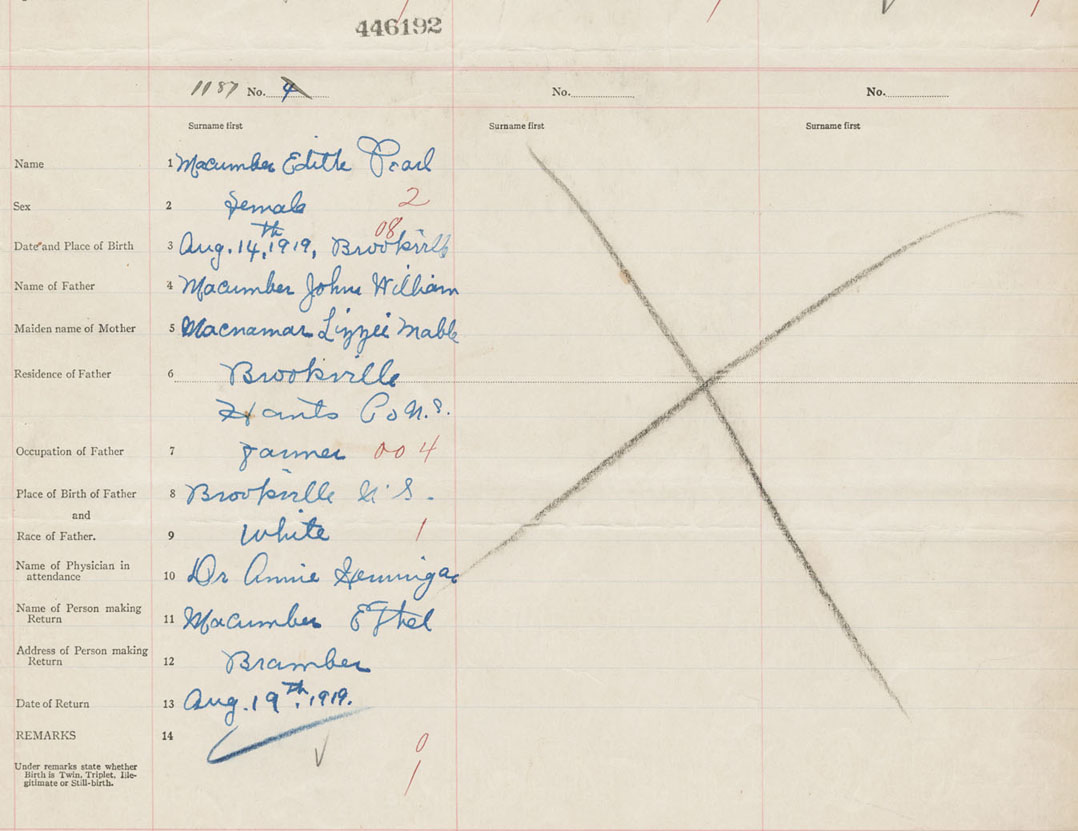 446192
1187 No. 4
No.
No.
Surname first
Surname first
Surname first
Name 1 Macumber Edith Pearl
Sex 2 Female 2
Date and Place of Birth 3 Aug. 14th, 1919, Brookville 08
Name of Father 4 Macumber John William
Maiden name of Mother 5 Macnamar Lizzie Mable
Residence of Father 6 Brookville
Hants Co N.S.
Occupation of Father 7 Farmer 004
Place of Birth of Father 8 Brookville N.S.
and
Race of Father. 9 White 1
Name of Physician in
attendance 10 Dr Annie
Name of Person making
Return 11 Macumber Ethel
Address of Person making
Return 12 Bramber
Date of Return 13 Aug. 19th, 1919.
REMARKS 14
0
Under remarks state whether
Birth is Twin, Triplet, Ille-
gitimate or Still-birth.
1